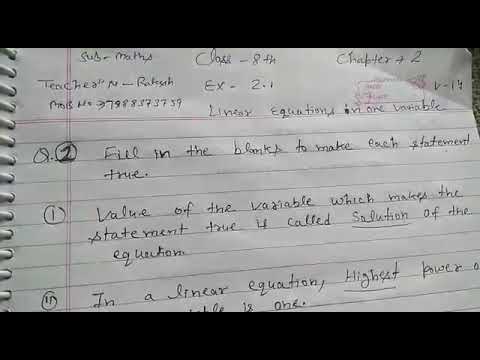 Sub - maths Class - 8th Chapter - 2
Teacher's N - Rakesh Ex - 2.1
Mob No →7988573759 Linear equations in one variable
Q. ② Fill in the blanks to make each statement
true.
(i) Value of the variable which makes the
statement true is called Solution of the
equation.
(ii) In a linear equation, Highest power o
is one.